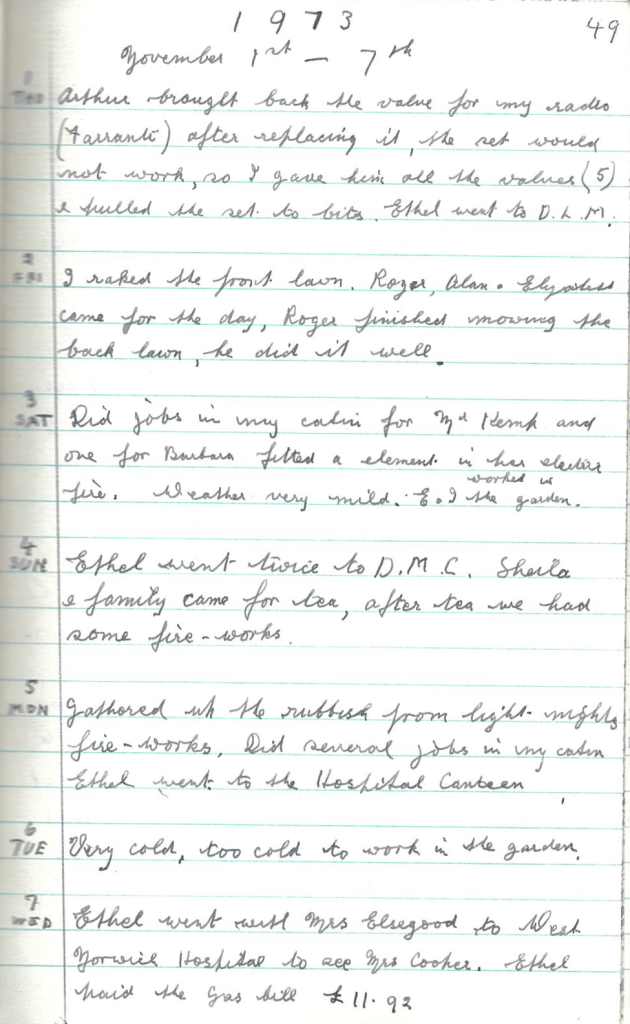 1973
49
November 1st — 7th
1 THU Arthur brought back the value for my radio
(Farranti) after replacing it, the set would
not work, so I gave him all the values (5)
& pulled the set to bits. Ethel went to D.L.M.
2 FRI I raked the front lawn. Roger, Alan & Elyzabeth
came for the day, Roger finished mowing the
back lawn, he did it well.
3 SAT Did jobs in my cabin for Md Kemp and
one for Barbara fitted a element in her electric
fire. Weather very mild. E & I worked in the garden.
4 SUN Ethel went twice to D.M.C. Sheila
& family came for tea, after tea we had
some fire-works.
5 MON Gathered up the rubbish from light-nights
fire-works. Did several jobs in my cabin
Ethel went to the Hospital Canteen
6 TUE Very cold, too cold to work in the garden.
7 WED Ethel went with Mrs Elsegood to West
Norwich Hospital to see Mrs Cooper. Ethel
paid the Gas bill £11.92